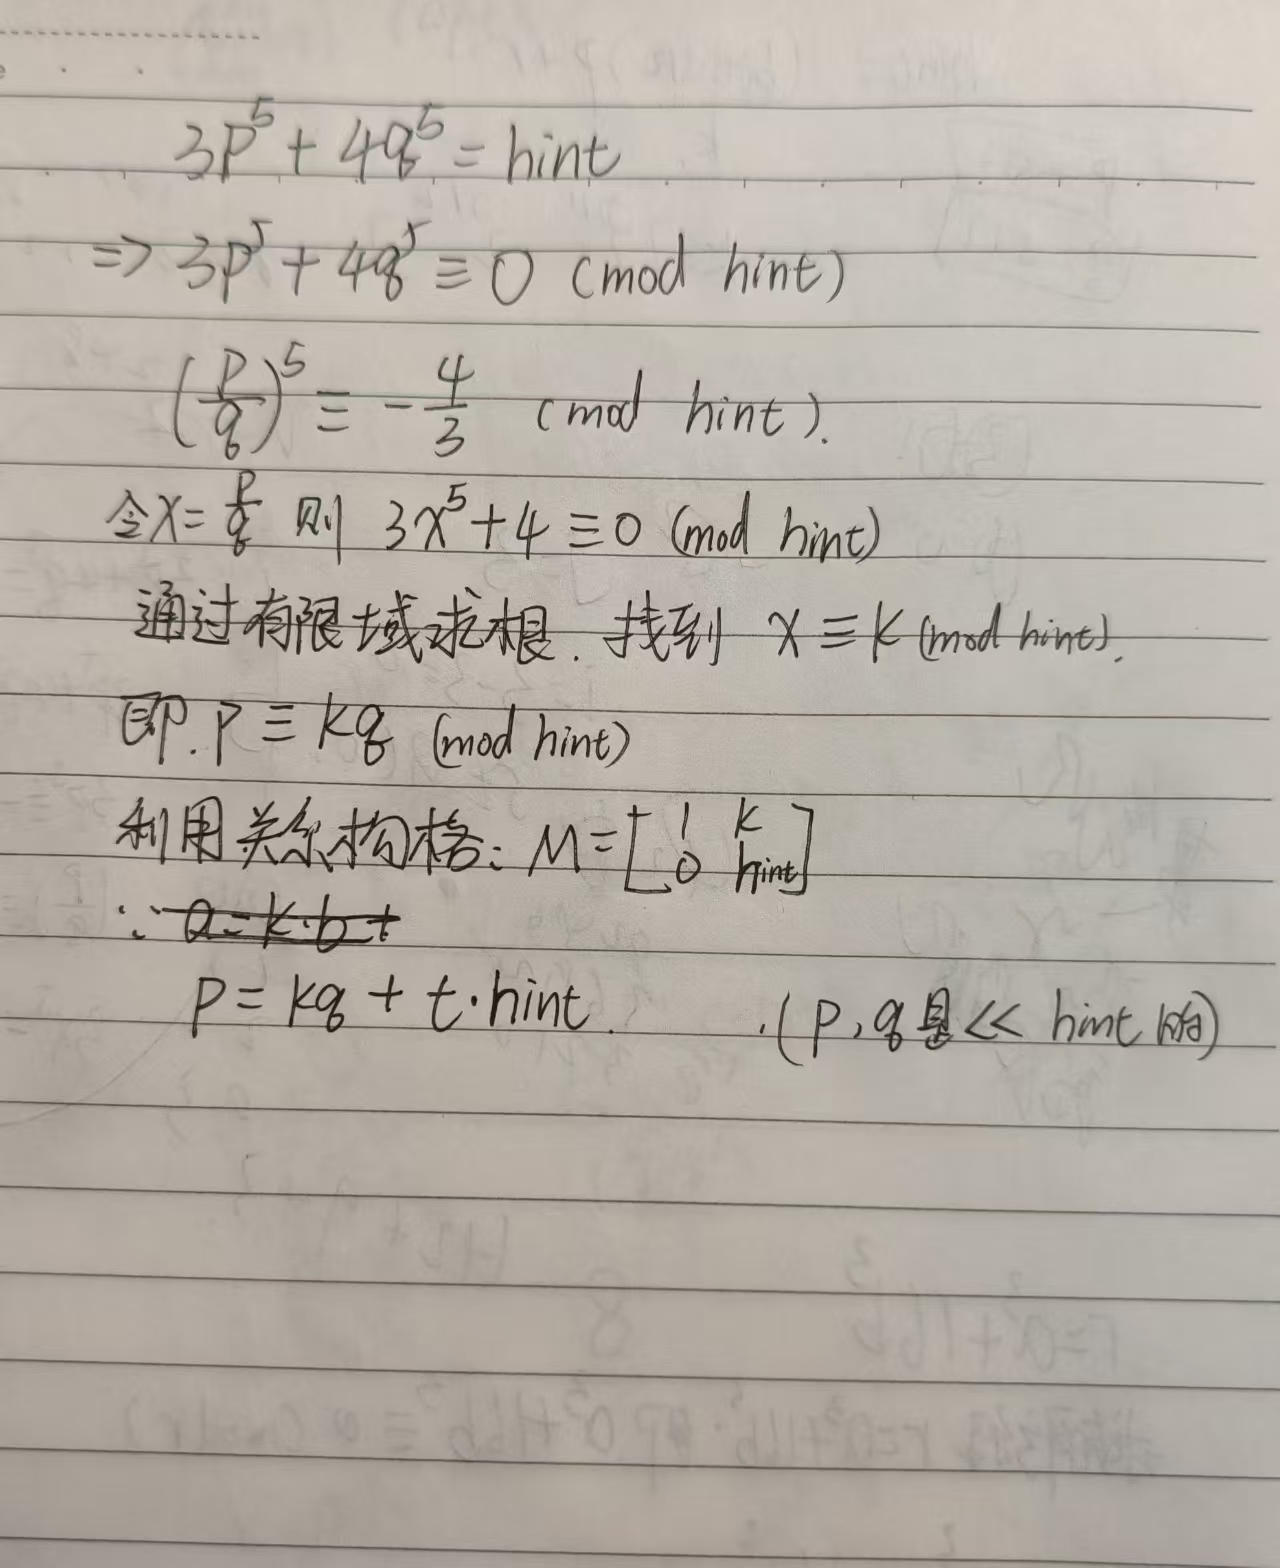 3p⁵ + 4q⁵ = hint
⇒ 3p⁵ + 4q⁵ ≡ 0 (mod hint)
(p/q)⁵ ≡ - 4/3 (mod hint).
令x = p/q 则 3x⁵ + 4 ≡ 0 (mod hint)
通过有限域求根. 找到 x ≡ k (mod hint).
即. p ≡ kq (mod hint)
利用关系构格: M = [1 k
0 hint]
∵
p = kq + t·hint. (p, q是 << hint 的)